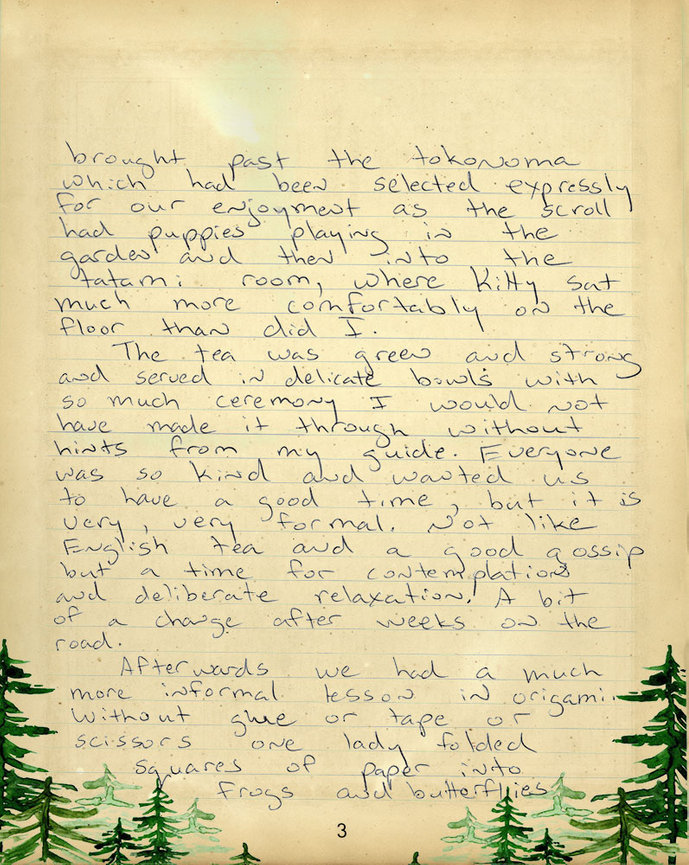 brought past the tokonoma
which had been selected expressly
for our enjoyment as the scroll
had puppies playing in the
garden and then into the
tatami room, where Kitty sat
much more comfortably on the
floor than did I.
The tea was green and strong
and served in delicate bowls with
so much ceremony I would not
have made it through without
hints from my guide. Everyone
was so kind and wanted us
to have a good time, but it is
very, very formal. Not like
English tea and a good gossip
but a time for contemplation
and deliberate relaxation. A bit
of a change after weeks on the
road.
Afterwards we had a much
more informal lesson in origami.
Without glue or tape or
scissors one lady folded
squares of paper into
frogs and butterflies
3